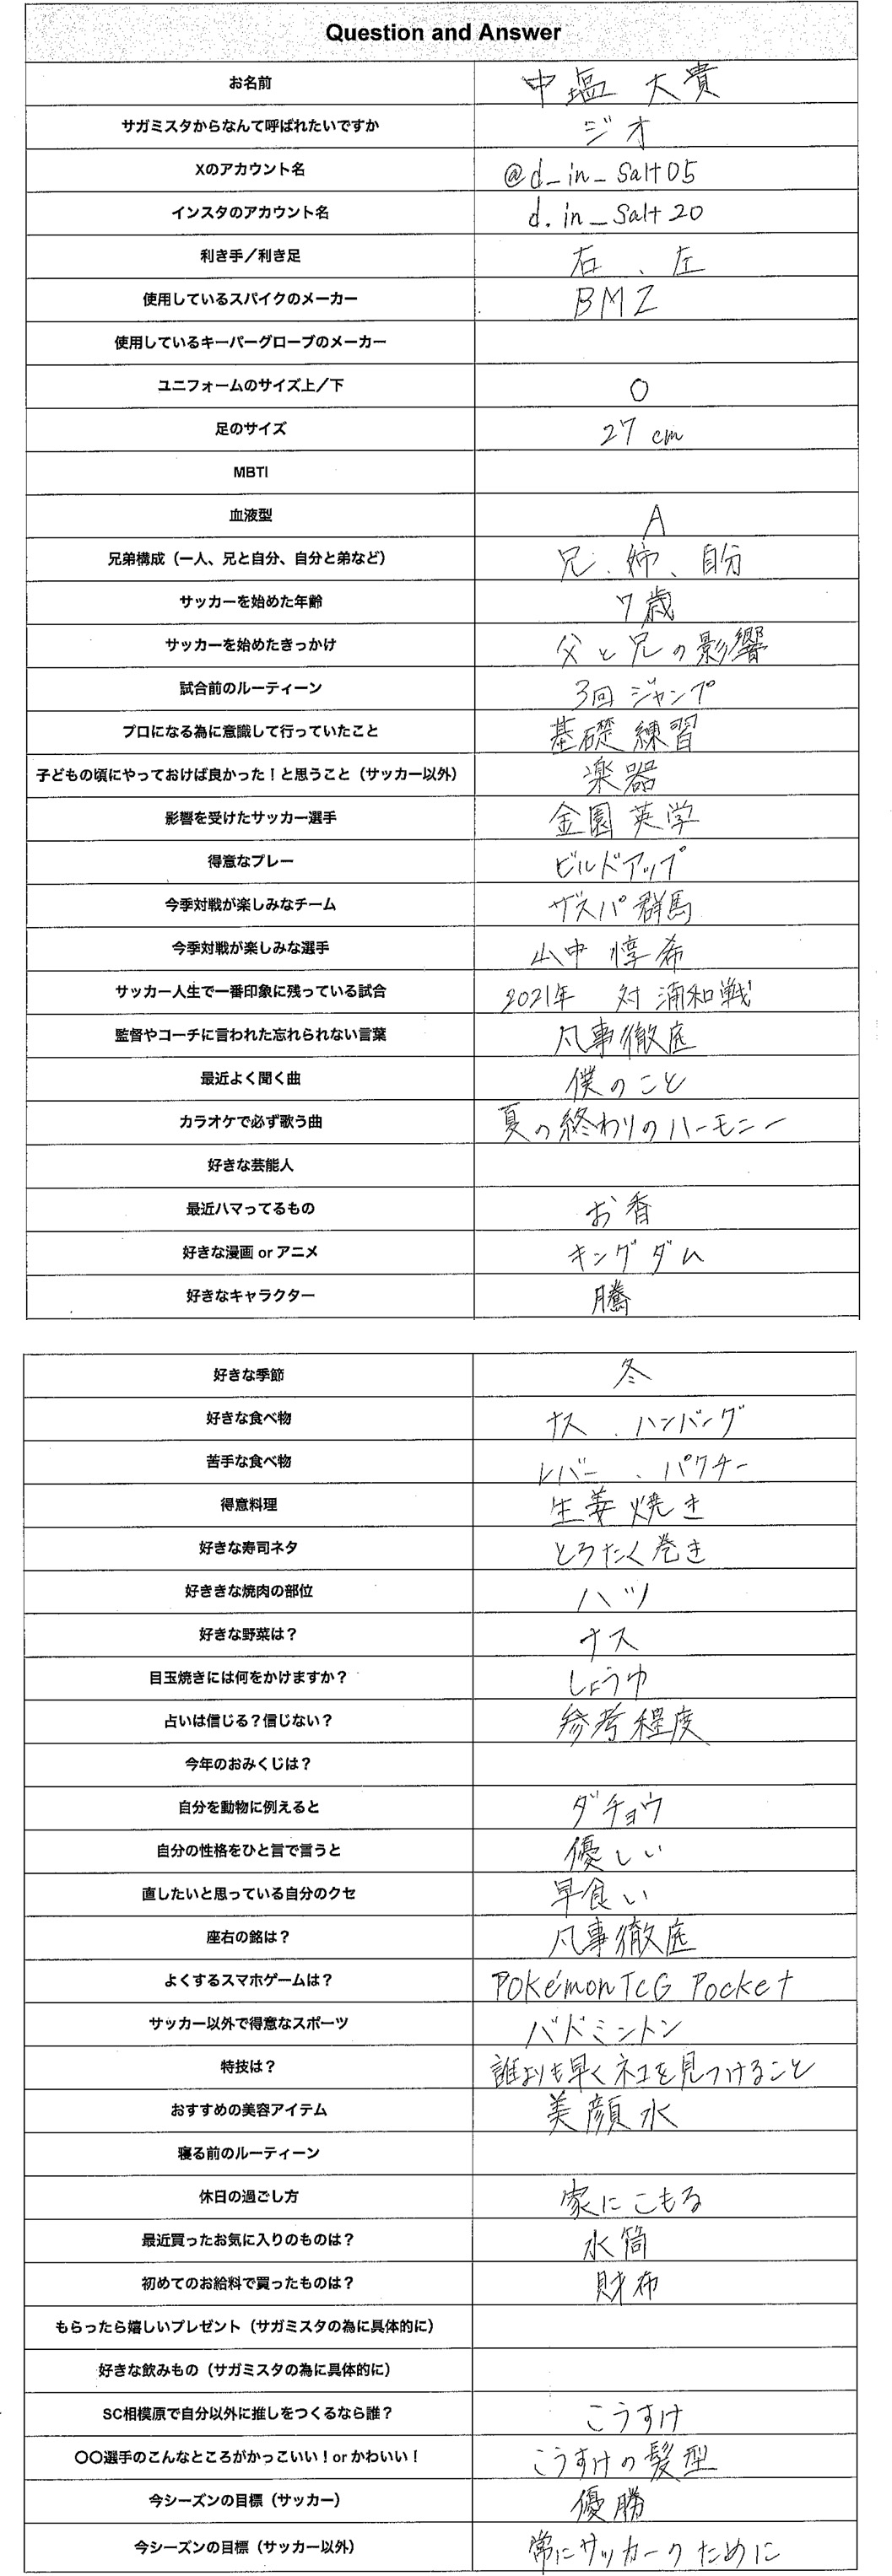 Question and Answer
お名前 中塩 大貴
サガミスタからなんて呼ばれたいですか ジオ
Xのアカウント名 @d_in_Salt05
インスタのアカウント名 d.in_Salt20
利き手／利き足 右、左
使用しているスパイクのメーカー BMZ
使用しているキーパーグローブのメーカー
ユニフォームのサイズ上／下 O
足のサイズ 27 cm
MBTI
血液型 A
兄弟構成（一人、兄と自分、自分と弟など） 兄、姉、自分
サッカーを始めた年齢 7歳
サッカーを始めたきっかけ 父と兄の影響
試合前のルーティーン 3回ジャンプ
プロになる為に意識して行っていたこと 基礎練習
子どもの頃にやっておけば良かった！と思うこと（サッカー以外） 楽器
影響を受けたサッカー選手 金園英学
得意なプレー ビルドアップ
今季対戦が楽しみなチーム ザスパ群馬
今季対戦が楽しみな選手 山中 惇希
サッカー人生で一番印象に残っている試合 2021年 対 浦和戦
監督やコーチに言われた忘れられない言葉 凡事徹底
最近よく聞く曲 僕のこと
カラオケで必ず歌う曲 夏の終わりのハーモニー
好きな芸能人
最近ハマってるもの お香
好きな漫画 or アニメ キングダム
好きなキャラクター 騰
好きな季節 冬
好きな食べ物 ナス、ハンバーグ
苦手な食べ物 レバー、パクチー
得意料理 生姜焼き
好きな寿司ネタ とろたく巻き
好ききな焼肉の部位 ハツ
好きな野菜は？ ナス
目玉焼きには何をかけますか？ しょうゆ
占いは信じる？信じない？ 参考程度
今年のおみくじは？
自分を動物に例えると ダチョウ
自分の性格をひと言で言うと 優しい
直したいと思っている自分のクセ 早食い
座右の銘は？ 凡事徹底
よくするスマホゲームは？ Pokémon TCG Pocket
サッカー以外で得意なスポーツ バドミントン
特技は？ 誰よりも早くネコを見つけること
おすすめの美容アイテム 美顔水
寝る前のルーティーン
休日の過ごし方 家にこもる
最近買ったお気に入りのものは？ 水筒
初めてのお給料で買ったものは？ 財布
もらったら嬉しいプレゼント（サガミスタの為に具体的に）
好きな飲みもの（サガミスタの為に具体的に）
SC相模原で自分以外に推しをつくるなら誰？ こうすけ
〇〇選手のこんなところがかっこいい！or かわいい！ こうすけの髪型
今シーズンの目標（サッカー） 優勝
今シーズンの目標（サッカー以外） 常にサッカーのために